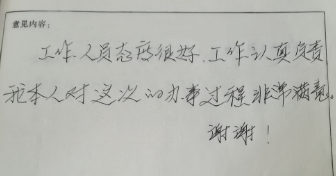 意见内容：
工作人员态度很好，工作认真负责
我本人对这次的办事过程非常满意。
谢谢！